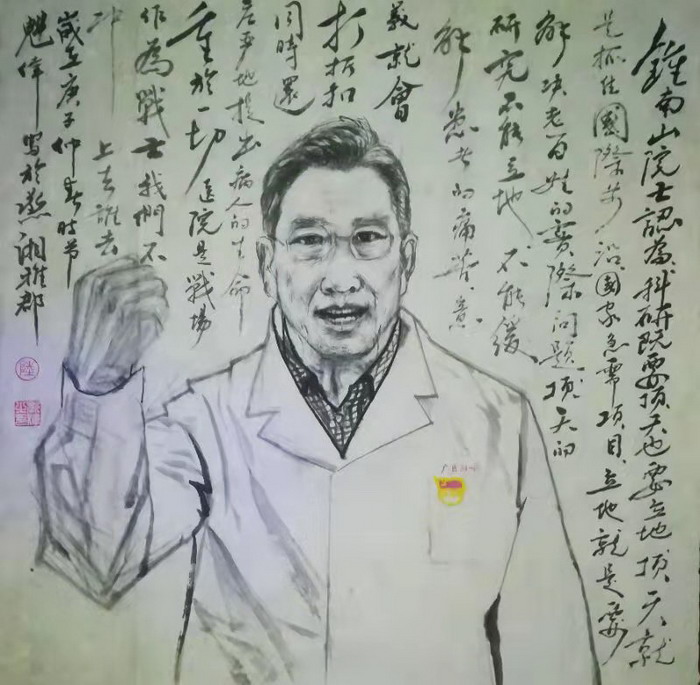 鍾南山院士認為科研既要頂天也要立地頂天就
是抓住國際前沿國家急需項目立地就是要
解决老百姓的實際問題頂天的
研究不能立地不能缓
解患者的痛苦意
義就會
打折扣
同時還
庄严地提出病人的生命
重於一切医院是戰場
作為戰士我們不
冲上去誰去
歲在庚子仲春时节
魁偉寫於湘雅郡
陸